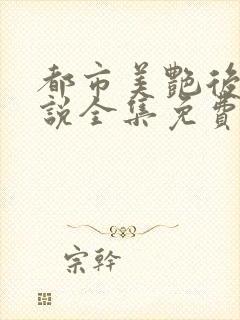 都市美艷後
說全集免費
宗幹